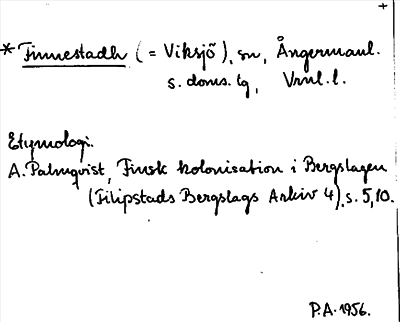 +
* Finnestadh (= Viksjö), sn, Ångermanl.
s. doms. tg, Vrml. l.
Etymologi.
A. Palmqvist, Finsk kolonisation i Bergslagen
(Filipstads Bergslags Arkiv 4), s. 5, 10.
P.A. 1956.